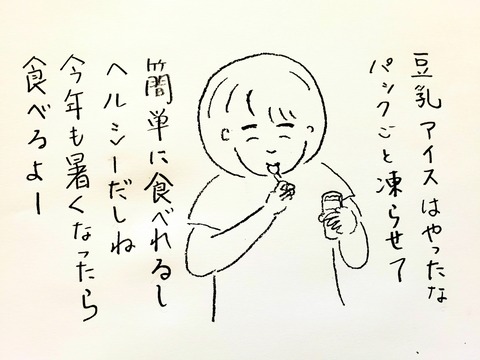 豆乳アイスはやったな
パックごと凍らせて
簡単に食べれるし
ヘルシーだしね
今年も暑くなったら
食べるよー